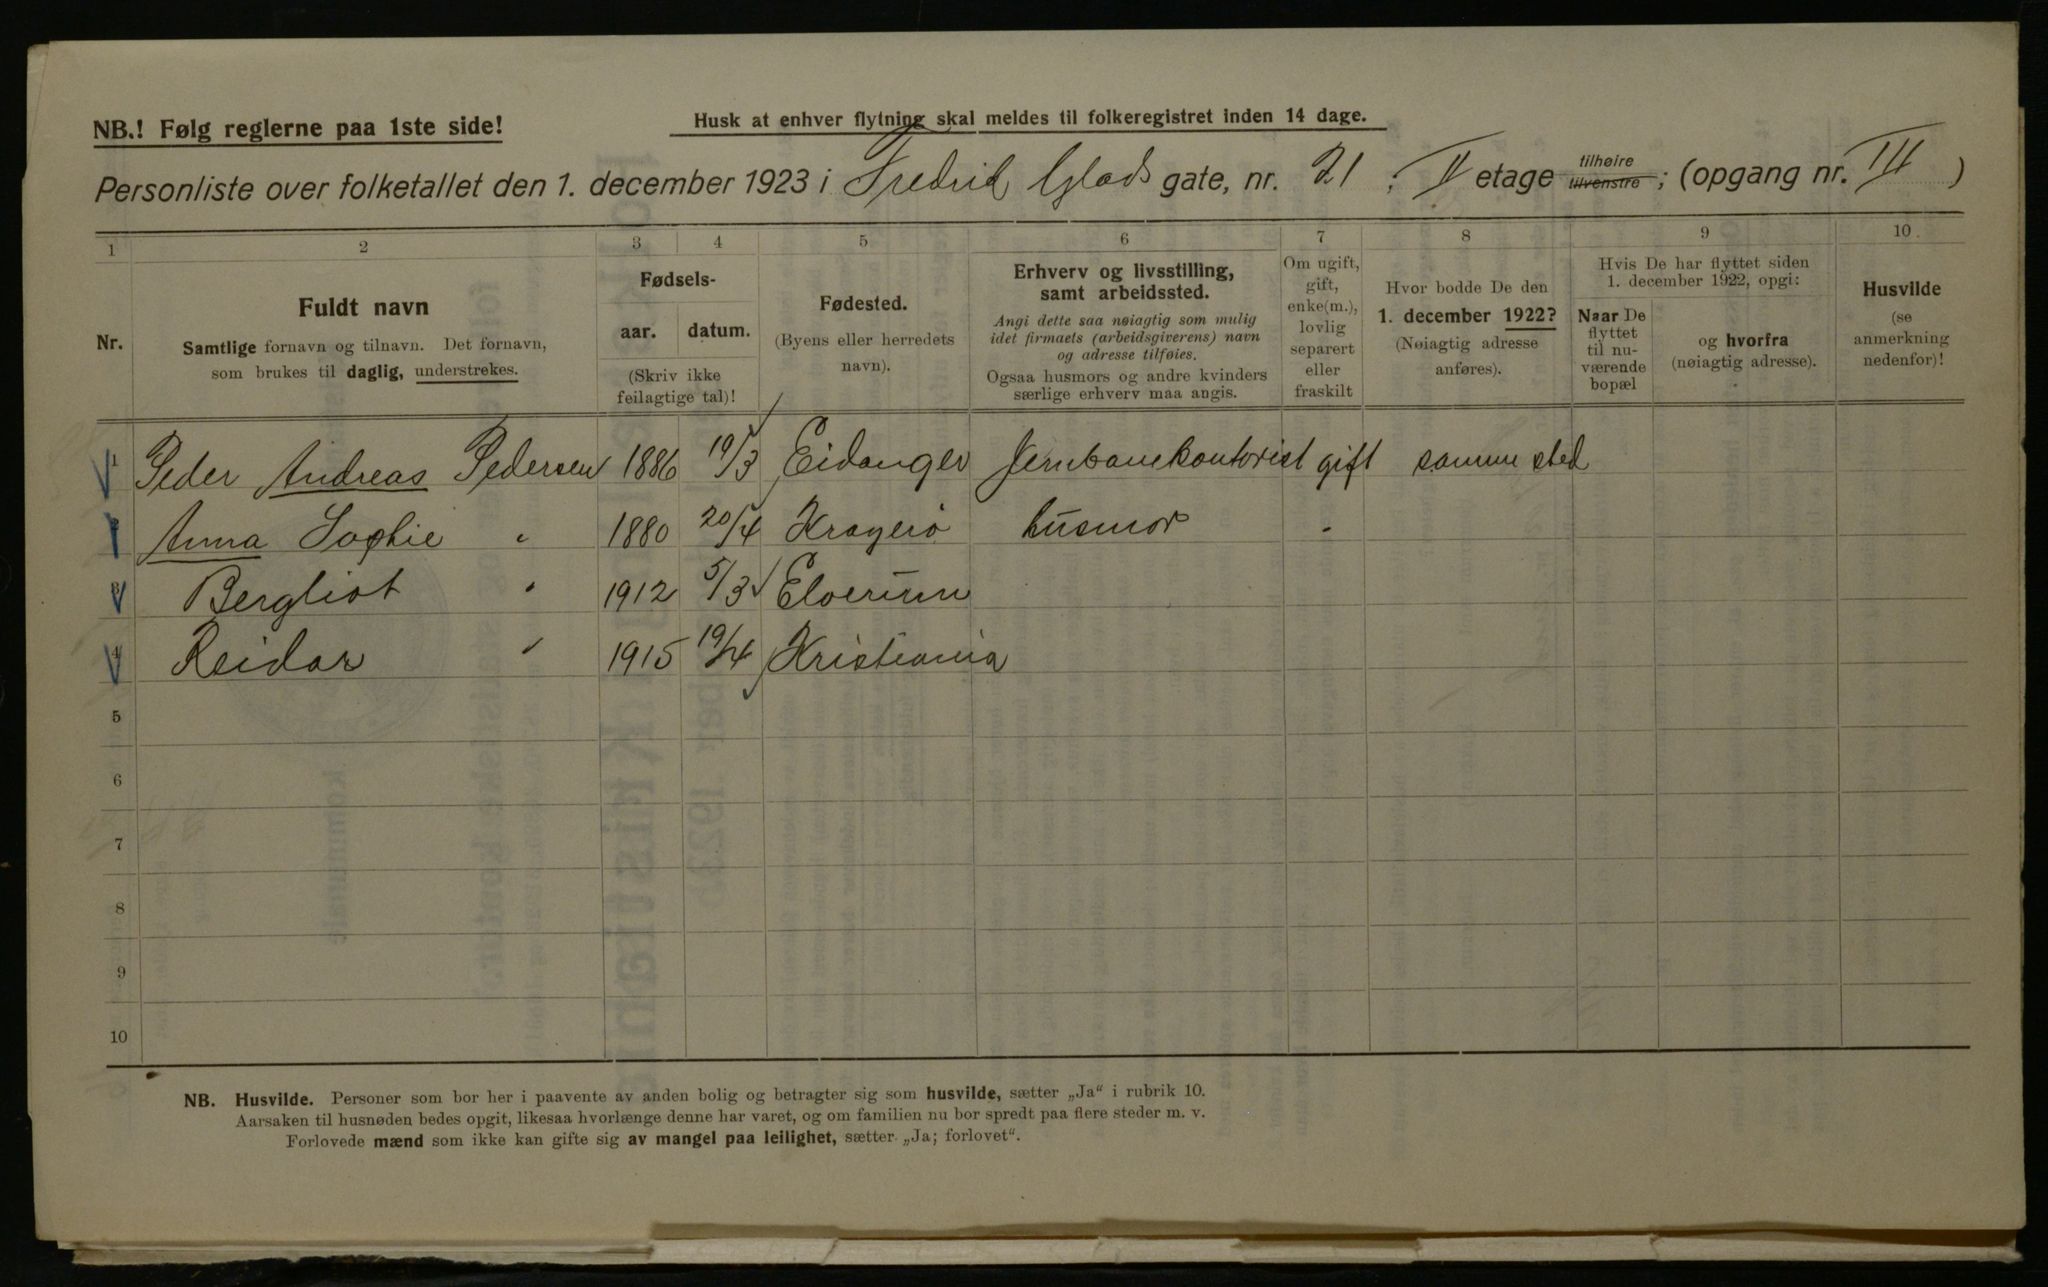 NB.! Følg reglerne paa 1ste side!
Husk at enhver flytning skal meldes til folkeregistret inden 14 dage.
Personliste over folketallet den 1. december 1923 i Fredrik Glads gate, nr. 21 ; II etage tilhøire tilvenstre ; (opgang nr. III )
1 2 3 4 5 6 7 8 9 10
Nr.
Fuldt navn
Samtlige fornavn og tilnavn. Det fornavn,
som brukes til daglig, understrekes.
Fødsels-
aar. datum.
(Skriv ikke
feilagtige tal)!
Fødested.
(Byens eller herredets
navn).
Erhverv og livsstilling,
samt arbeidssted.
Angi dette saa nøiagtig som mulig
idet firmaets (arbeidsgiverens) navn
og adresse tilføies.
Ogsaa husmors og andre kvinders
særlige erhverv maa angis.
Om ugift,
gift,
enke(m.),
lovlig
separert
eller
fraskilt
Hvor bodde De den
1. december 1922?
(Nøiagtig adresse
anføres).
Hvis De har flyttet siden
1. december 1922, opgi:
Naar De
flyttet
til nu-
værende
bopæl
og hvorfra
(nøiagtig adresse).
Husvilde
(se
anmerkning
nedenfor)!
1 Peder Andreas Pedersen 1886 19/3 Eidanger Jernbanekontorist gift samme sted
2 Anna Sophie " 1880 20/4 Kragerø husmor "
3 Bergliot " 1912 5/3 Elverum
4 Reidar " 1915 19/4 Kristiania
5
6
7
8
9
10
NB. Husvilde. Personer som bor her i paavente av anden bolig og betragter sig som husvilde, sætter „Ja“ i rubrik 10.
Aarsaken til husnøden bedes opgit, likesaa hvorlænge denne har varet, og om familien nu bor spredt paa flere steder m. v.
Forlovede mænd som ikke kan gifte sig av mangel paa leilighet, sætter „Ja; forlovet“.